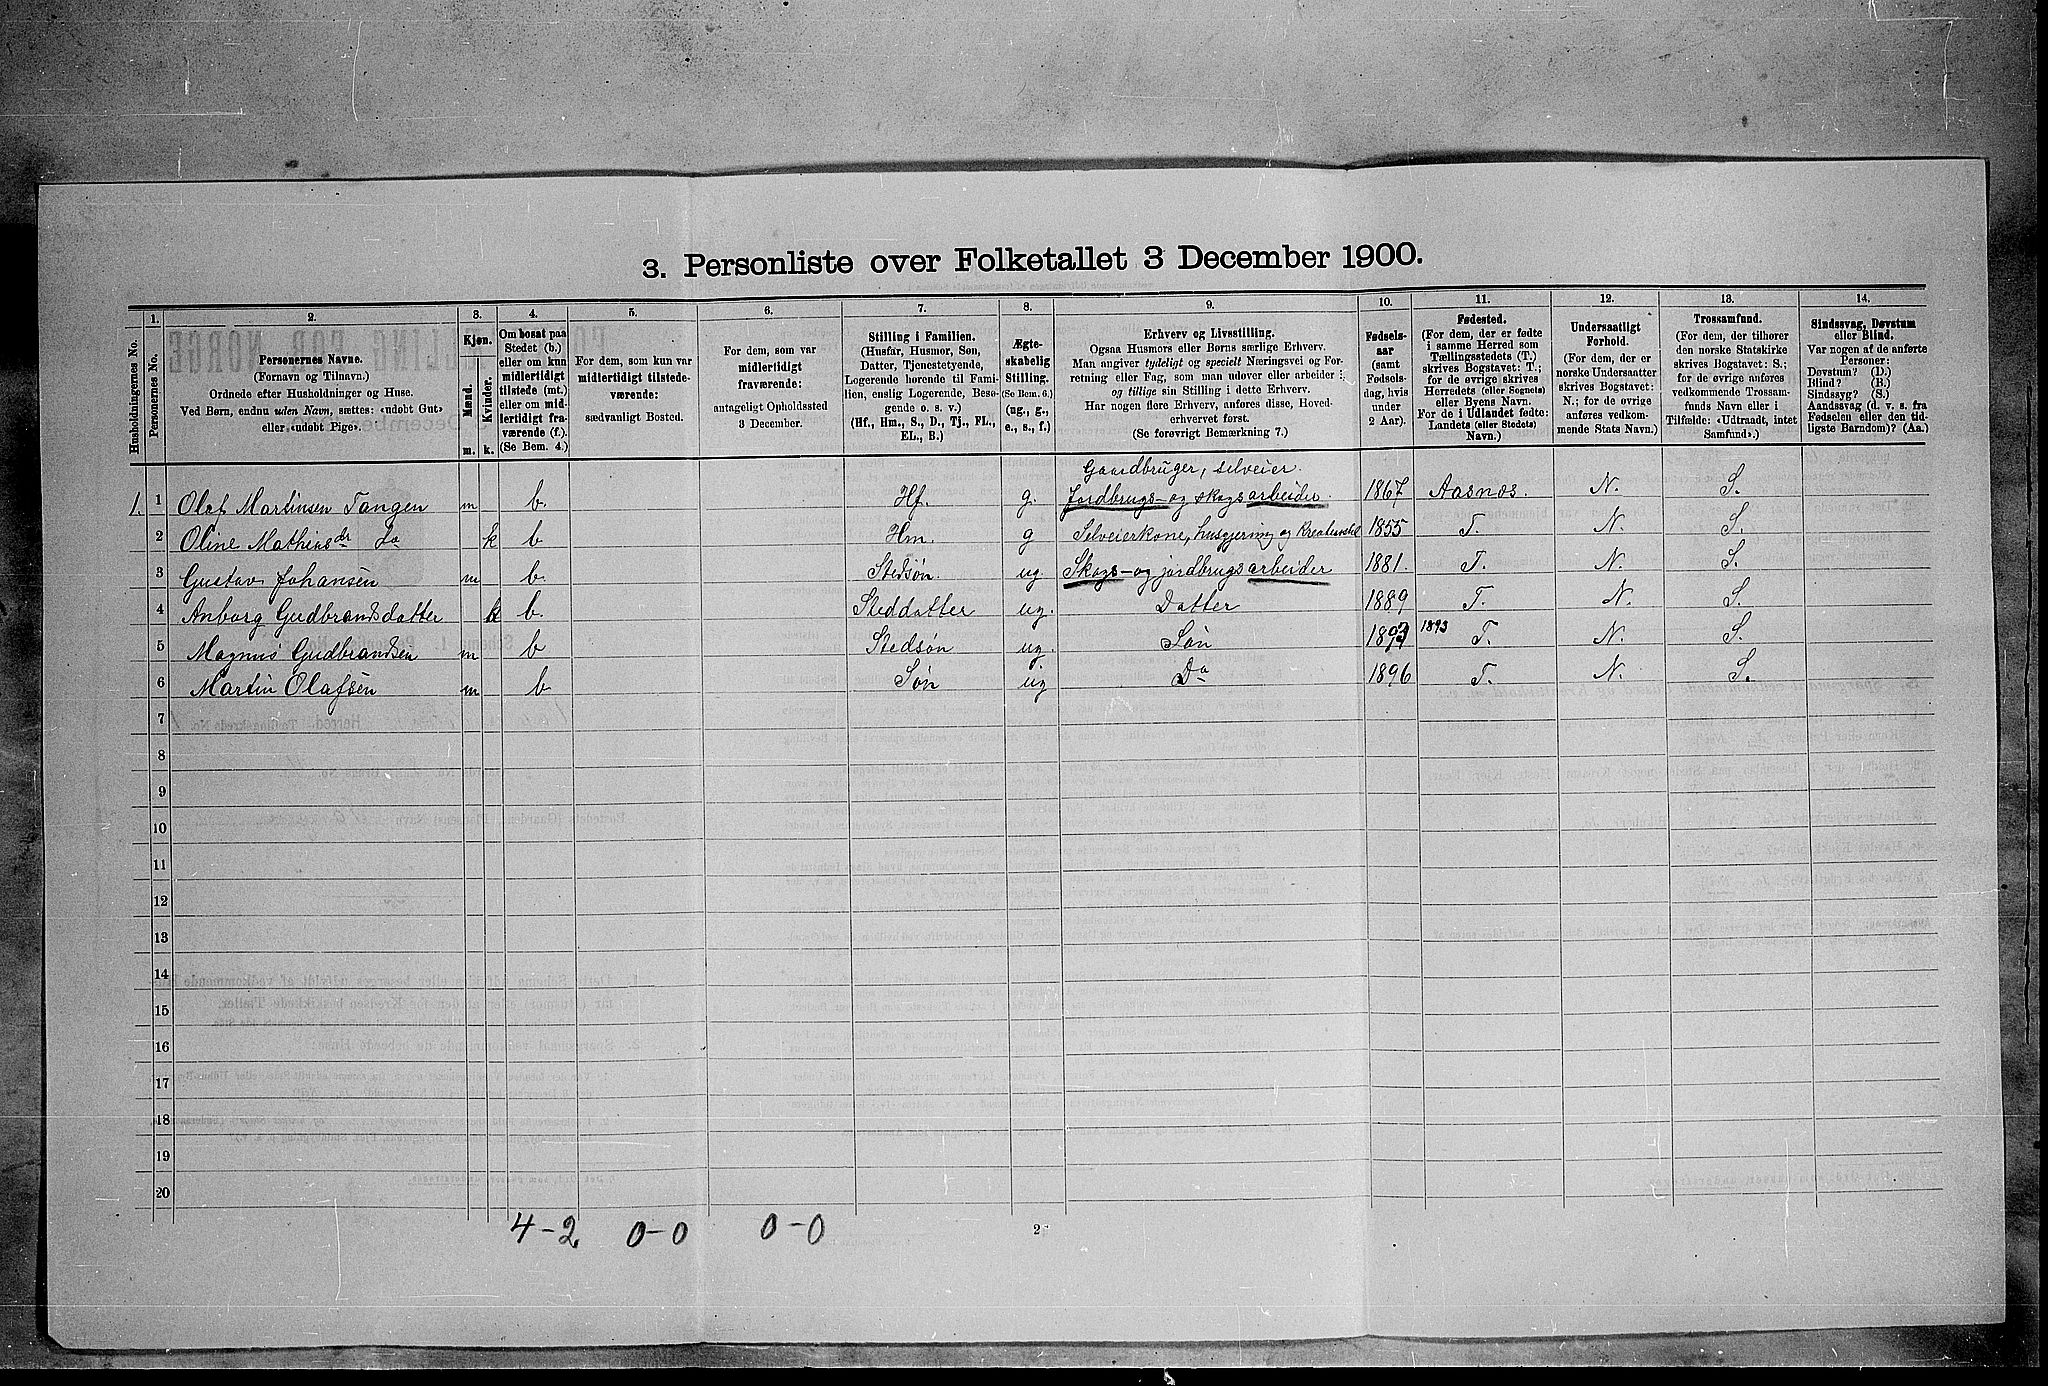 3. Personliste over Folketallet 3 December 1900.
Husholdningernes No.
1. Personernes No.
2. Personernes Navne. (Fornavn og Tilnavn.) Ordnede efter Husholdninger og Huse. Ved Børn, endnu uden Navn, sættes: «udøbt Gut» eller «udøbt Pige».
3. Kjøn. Mænd. m. Kvinder. k.
4. Om bosat paa Stedet (b.) eller om kun midlertidigt tilstede (mt.) eller om midlertidigt fraværende (f.). (Se Bem. 4.)
5. For dem, som kun var midlertidigt tilstedeværende: sædvanligt Bosted.
6. For dem, som var midlertidigt fraværende: antageligt Opholdssted 3 December.
7. Stilling i Familien. (Husfar, Husmor, Søn, Datter, Tjenestetyende, Logerende hørende til Familien, enslig Logerende, Besøgende o. s. v.) (Hf., Hm., S., D., Tj., FL., EL., B.)
8. Ægteskabelig Stilling. (Se Bem. 6.) (ug., g., e., s., f.)
9. Erhverv og Livsstilling. Ogsaa Husmors eller Børns særlige Erhverv. Man angiver tydeligt og specielt Næringsvei og Forretning eller Fag, som man udøver eller arbeider i; og tillige sin Stilling i dette Erhverv. Har nogen flere Erhverv, anføres disse, Hovederhvervet først. (Se forøvrigt Bemærkning 7.)
10. Fødselsaar (samt Fødselsdag, hvis under 2 Aar).
11. Fødested. (For dem, der er fødte i samme Herred som Tællingsstedets (T.) skrives Bogstavet: T.; for de øvrige skrives Herredets (eller Sognets) eller Byens Navn. For de i Udlandet fødte: Landets (eller Stedets) Navn.)
12. Undersaatligt Forhold. (For dem, der er norske Undersaatter skrives Bogstavet: N.; for de øvrige anføres vedkommende Stats Navn.)
13. Trossamfund. (For dem, der tilhører den norske Statskirke skrives Bogstavet: S.; for de øvrige anføres vedkommende Trossamfunds Navn eller i Tilfælde: «Udtraadt, intet Samfund».)
14. Sindssvag, Døvstum eller Blind. Var nogen af de anførte Personer: Døvstum? (D.) Blind? (B.) Sindssyg? (S.) Aandssvag (d. v. s. fra Fødselen eller den tidligste Barndom)? (Aa.)
Gaardbruger, selveier.
1. 1 Olaf Martinsen Tangen m b. Hf. g. Jordbrugs- og skogsarbeider. 1867 Aasnæs. N. S.
2 Oline Mathiasdr Do k b Hm. g Selveierkone, husgjerning og Kreaturstel 1855 T. N. S.
3 Gustav Johansen m b. Stedsøn. ug Skogs- og jordbrugsarbeider 1881. T. N. S.
4 Anborg Gudbrandsdatter k b. Steddatter ug. Datter 1889 T. N. S.
5 Magnus Gudbrandsen m b Stedsøn ug. Søn 1893 1893 T. N. S.
6 Martin Olafsen m b Søn ug Do 1896 T. N. S.
7
8
9
10
11
12
13
14
15
16
17
18
19
20
4-2 0-0 0-0 2